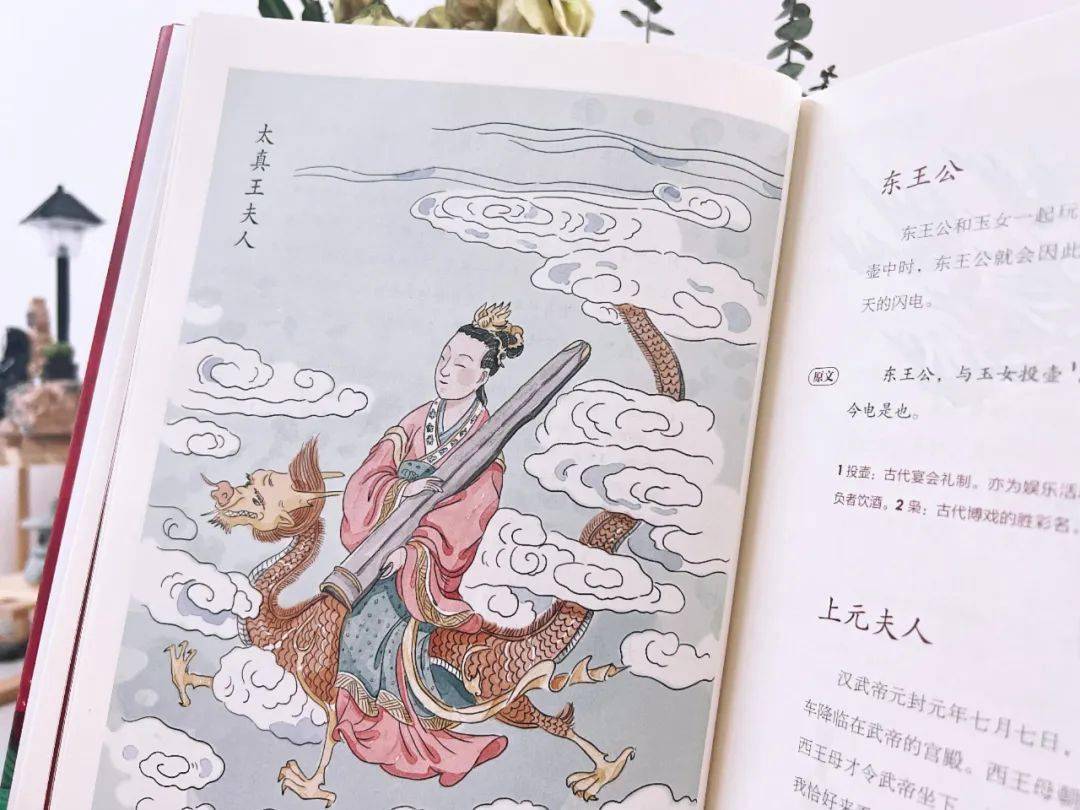 太真王夫人
东王公
东王公和玉女一起玩
壶中时，东王公就会因此
天的闪电。
原文
东王公，与玉女投壶
今电是也。
1 投壶：古代宴会礼制。亦为娱乐活
负者饮酒。2 枭：古代博戏的胜彩名。
上元夫人
汉武帝元封元年七月七日，
车降临在武帝的宫殿。西王母
西王母才令武帝坐下
我恰好来